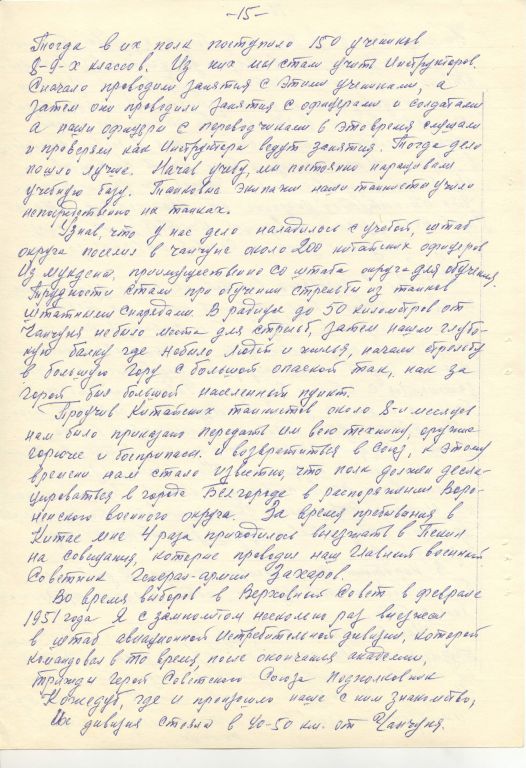 -15-
Тогда в их полк поступило 150 учеников
8-9-х классов. Из них мы стали учить инструкторов.
Сначало проводили занятия с этими учениками, а
затем они проводили занятия с офицерами и солдатами
а наши офицеры с переводчиками в это время слушали
и проверяли как инструктора ведут занятия. Тогда дело
пошло лучше. Начав учебу, мы постоянно наращивали
учебную базу. Танковые экипажи наши танкисты учили
непосредственно на танках.
Узнав, что у нас дело наладилось с учебой, штаб
округа поселил в Чанчуне около 200 китайских офицеров
из Мукдена, приимущественно со штаба округа для обучения.
Трудности стали при обучении стрельбы из танков
штатными снарядами. В радиусе до 50 километров от
Чанчуня не было места для стрельб, затем нашли глубо-
кую балку где небыло людей и жилья, начали стрельбу
в большую гору с большой опаской так, как за
горой был большой населенный пункт.
Проучив китайских танкистов около 8-и месяцев
нам было приказано передать им всю технику, оружие
горючие и боеприпасы и возвратиться в Союз, к этому
времени нам стало известно, что полк должен десло-
цироваться в городе Белгороде в распоряжении Воро-
нежского военного округа. За время пребывания в
Китае мне 4 раза приходилось выезжать в Пекин
на совещания, которые проводил наш главный военный
Советник Генерал-армии Захаров.
Во время выборов в Верховный Совет в феврале
1951 года я с замполитом несколько раз выезжал
в штаб авиационной истребительной дивизии, которой
командовал в то время, после окончания академии,
трижды герой Советского Союза Подполковник
Кожедуб, где и произошло наше с ним знакомство,
Их дивизия стояла в 40-50 км. от Чанчуня.